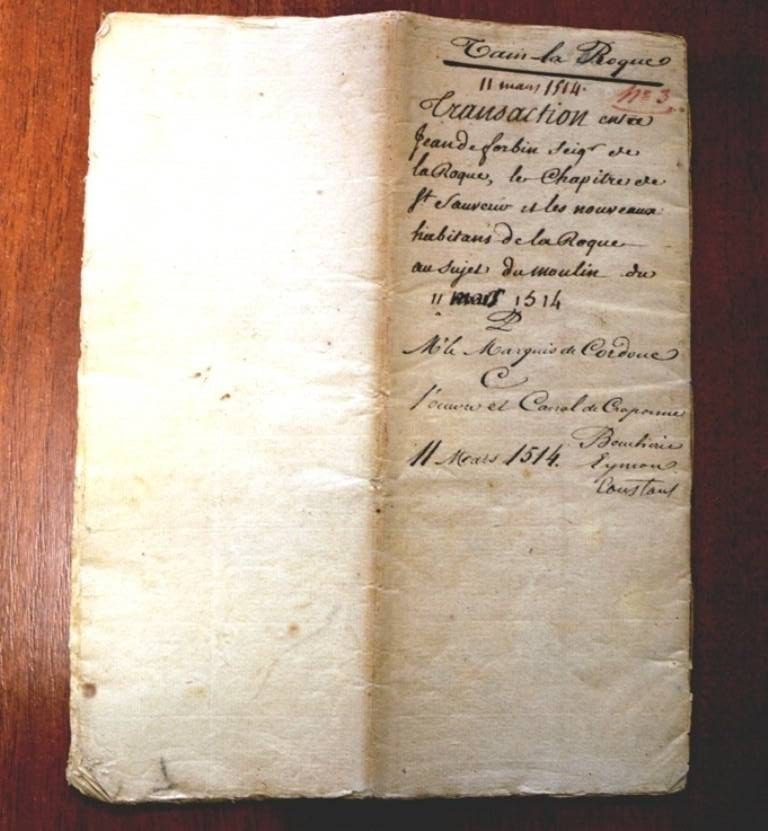 Tain-la Roque
11 mars 1514.
N° 3
Transaction entre
Jean de forbin seigr de
la Roque, le Chapitre de
St Sauveur et les nouveaux
habitans de la Roque
au sujet du moulin du
11 mars 1514
P
Mr le Marquis de Cordoue
C
l'œuvre et Canal de Craponne
11 Mars 1514.
Boucherie
Eymon
Constant